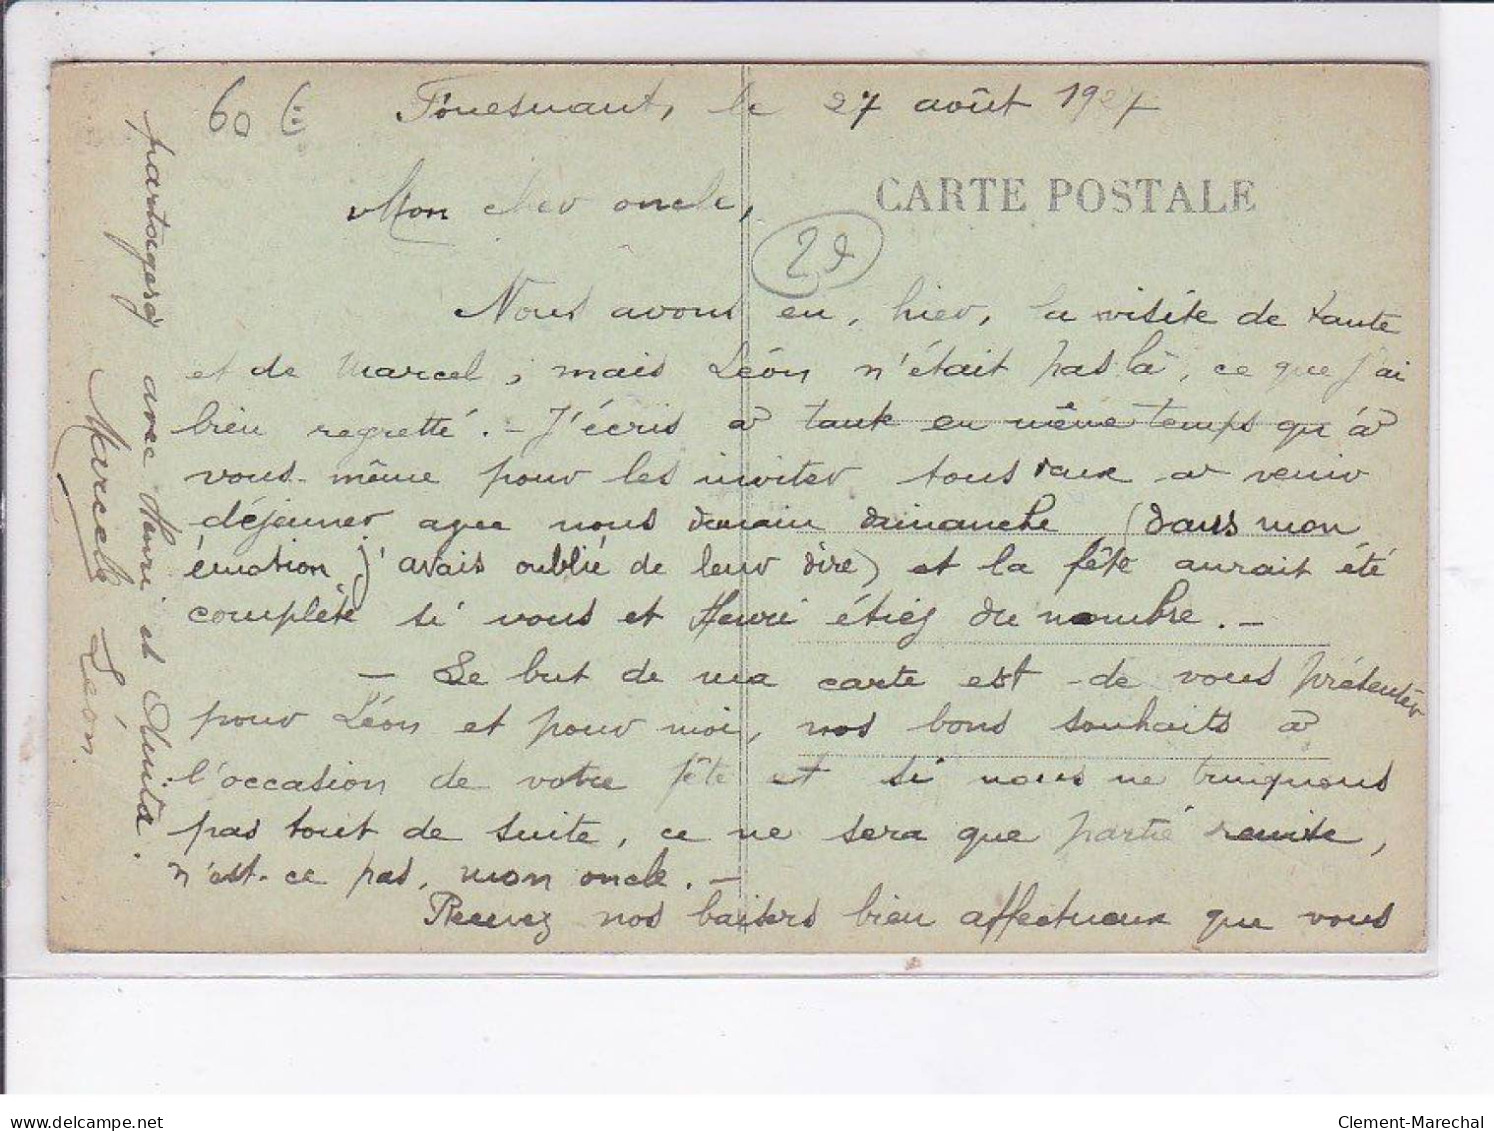 60 €
Fouesnant, le 27 août 1927
CARTE POSTALE
Mon cher oncle,
29
Nous avons eu, hier, la visite de tante
et de Marcel ; mais Léon n'était pas là, ce que j'ai
bien regretté. - J'écris à tante en même temps qu'à
vous-même pour les inviter tous deux à venir
déjeuner avec nous demain dimanche (dans mon
émotion j'avais oublié de leur dire) et la fête aurait été
complète si vous et Henri étiez du nombre. -
- Le but de ma carte est de vous présenter
pour Léon et pour moi, nos bons souhaits à
l'occasion de votre fête et si nous ne trinquons
pas tout de suite, ce ne sera que partie remise,
n'est-ce pas, mon oncle. -
Recevez nos baisers bien affectueux que vous
partagerez avec Henri et Anita.
Marcelle Léon
www.delcampe.net
Clement-Marechal